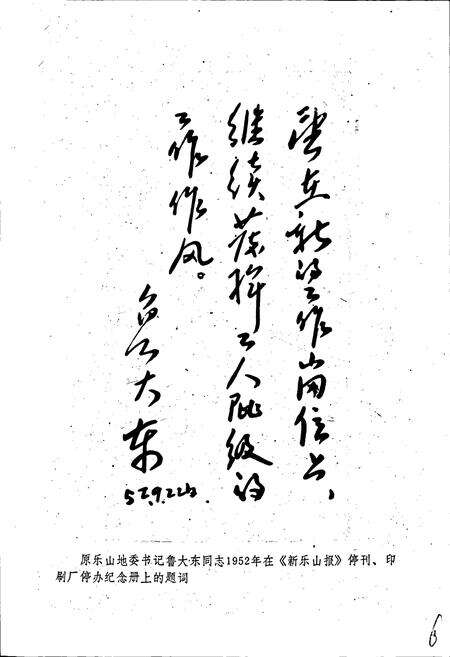 望在新的工作岗位上，
继续发挥工人阶级的
工作作风。
鲁大东
52.9.22日.
原乐山地委书记鲁大东同志1952年在《新乐山报》停刊、印
刷厂停办纪念册上的题词
6